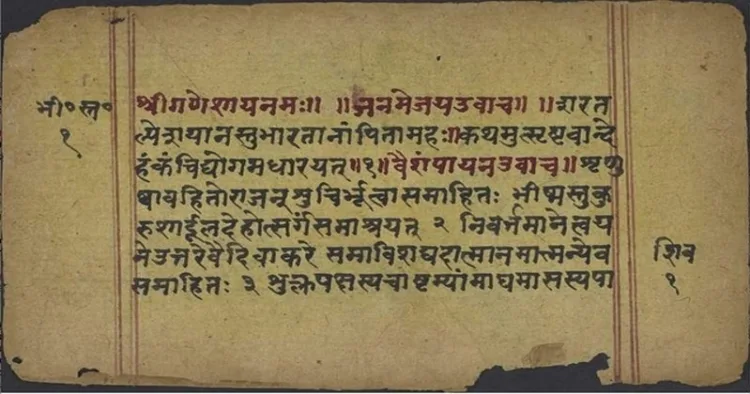 श्रीगणेशायनमः॥ ॥जनमेजयउवाच॥ ॥शरत
भी॰स्त॰
१
ल्पेशयानस्तुभारतानांपितामहः॥कथमुत्सृष्टवान्दे
हंकंचिद्योगमधारयत्॥१॥वैशंपायनउवाच॥शृणु
ष्वावहितोराजन्शुचिर्भूत्वासमाहितः भीष्मस्तुकु
रुशार्दूलदेहोत्सर्गसमाश्रयत् २ निवर्तमानेत्वय
नेउत्तरेवैदिवाकरे समाविशद्यदात्मानमात्मन्येव
समाहितः ३ शुक्लपक्षस्यचाष्टम्यांमाघमासस्यपा
शिव
१